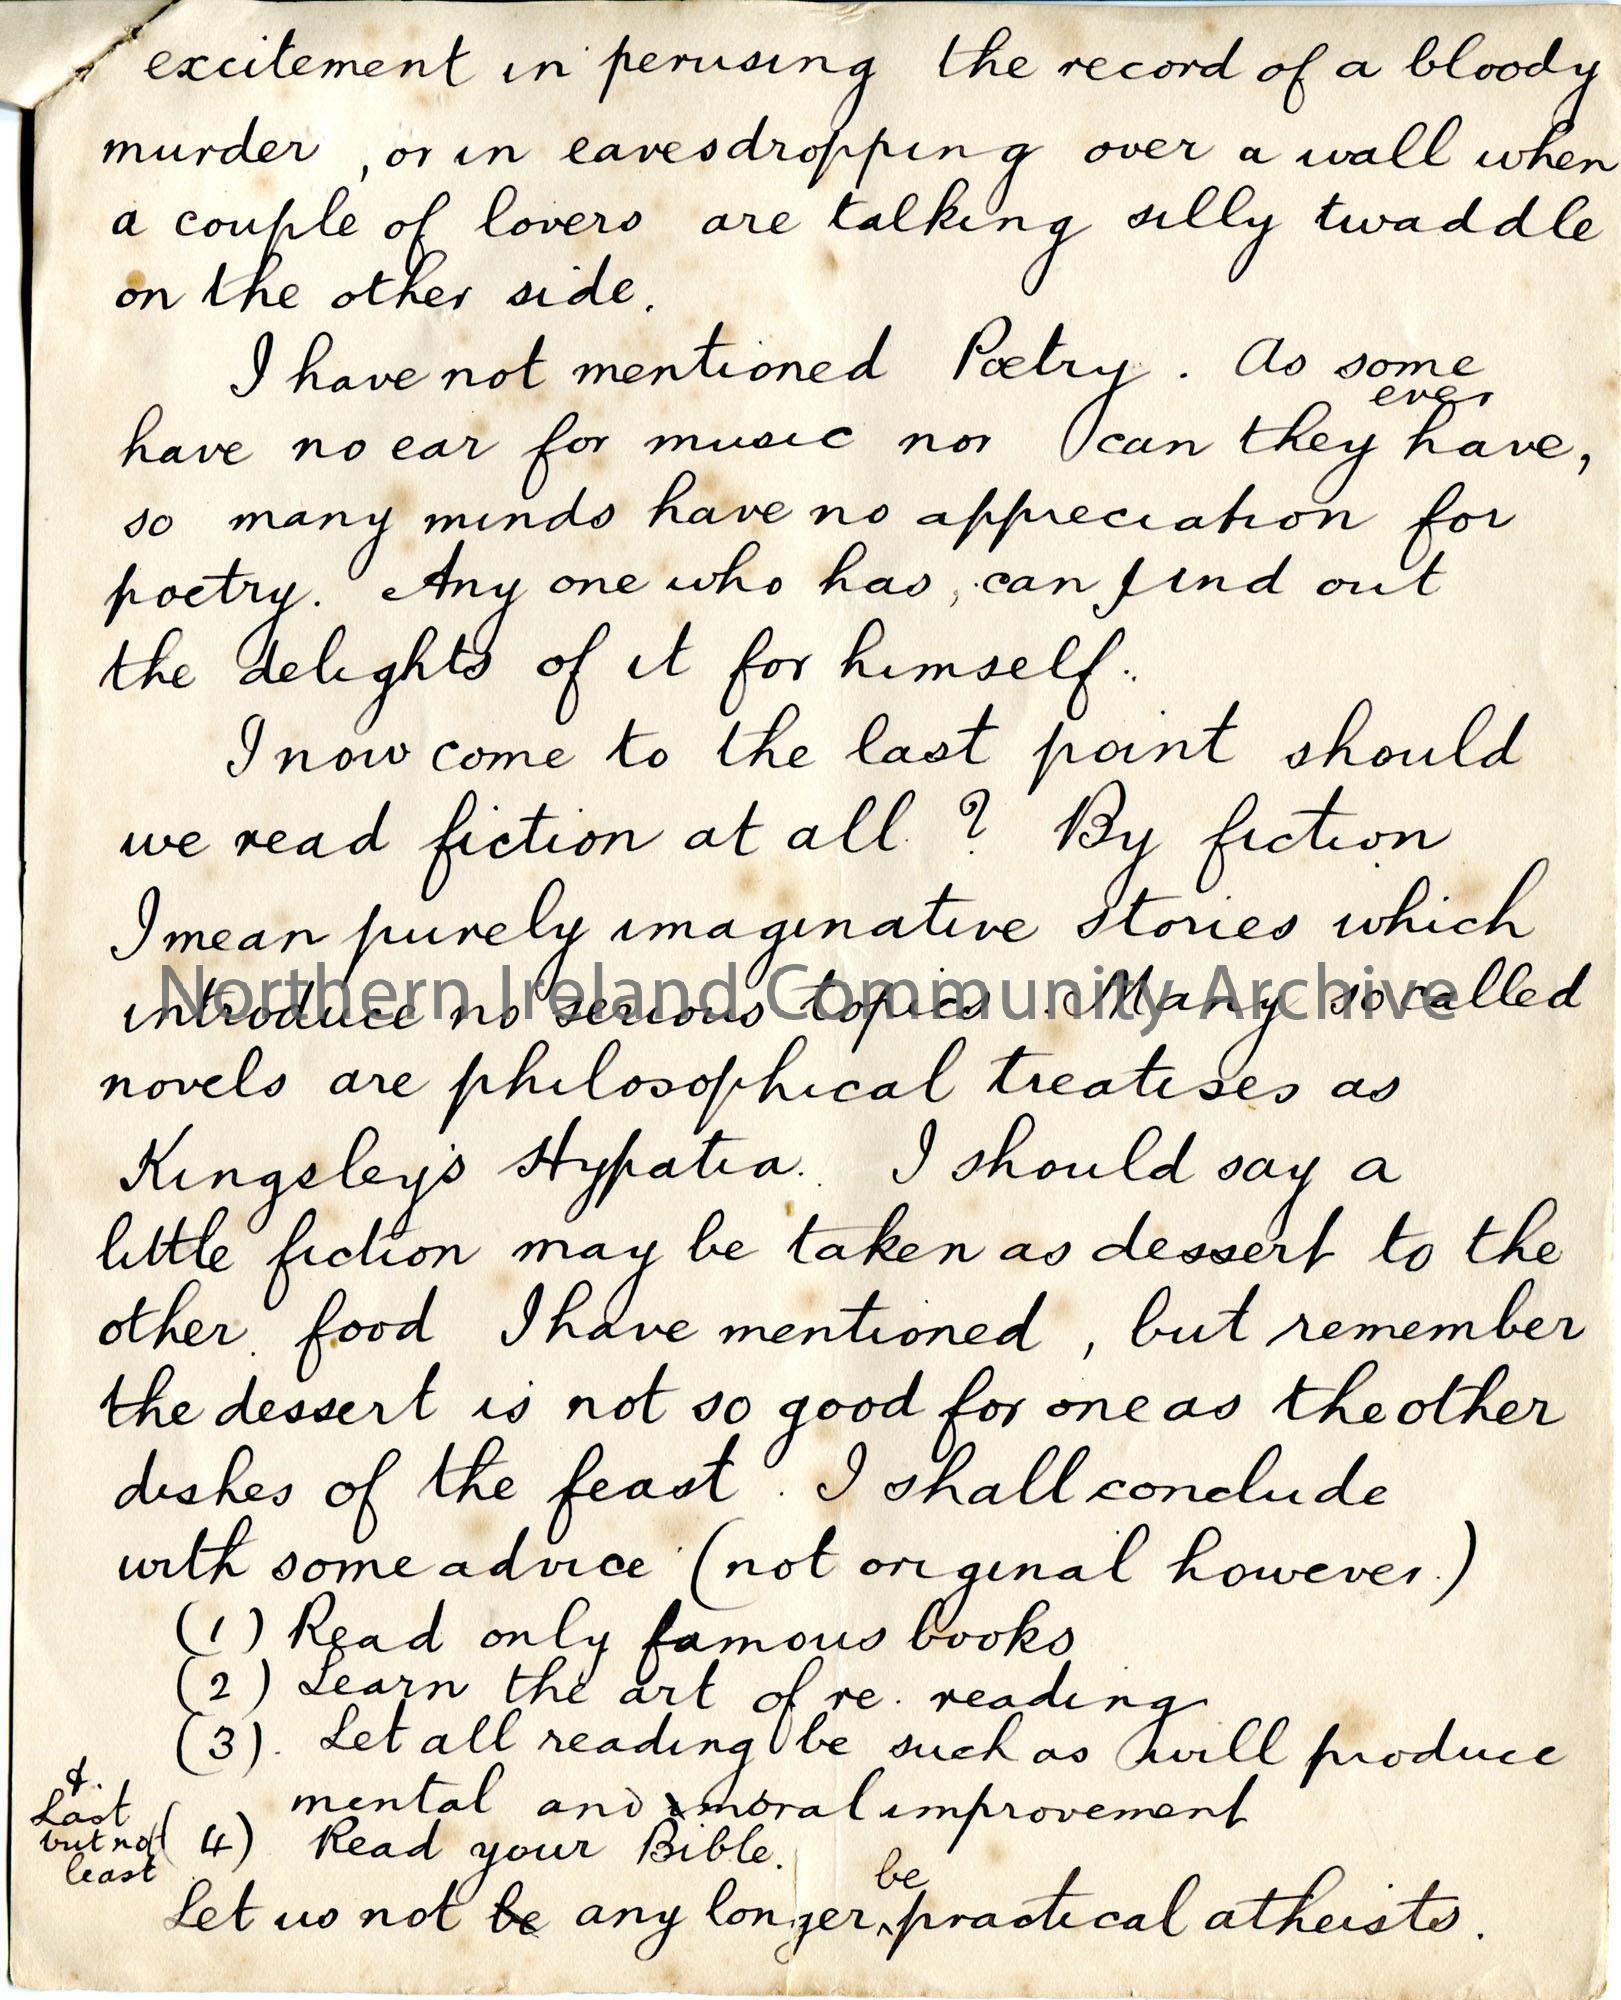 excitement in perusing the record of a bloody
murder, or in eavesdropping over a wall when
a couple of lovers are talking silly twaddle
on the other side.
I have not mentioned Poetry. As some
ever
have no ear for music nor can they have,
so many minds have no appreciation for
poetry. Any one who has, can find out
the delights of it for himself.
I now come to the last point should
we read fiction at all? By fiction
I mean purely imaginative stories which
Northern Ireland Community Archive
introduce no serious topics. Many so called
novels are philosophical treatises as
Kingsley's Hypatia. I should say a
little fiction may be taken as dessert to the
other food I have mentioned, but remember
the dessert is not so good for one as the other
dishes of the feast. I shall conclude
with some advice (not original however.)
(1) Read only famous books
(2) Learn the art of re. reading
(3). Let all reading be such as will produce
mental and moral improvement
&.
Last
but not
least
(4) Read your Bible.
be
Let us not be any longer practical atheists.